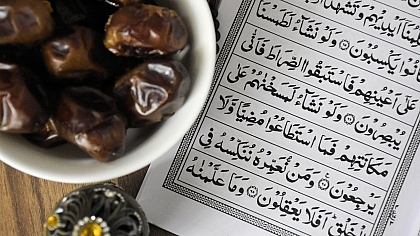 أَيْدِيهِمْ وَتَشْهَدُ
نُوا يَكْسِبُونَ ۝ وَلَوْ نَشَاءُ لَطَمَسْنَا
عَلَىٰ أَعْيُنِهِمْ فَاسْتَبَقُوا الصِّرَاطَ فَأَنَّىٰ
يُبْصِرُونَ ۝ وَلَوْ نَشَاءُ لَمَسَخْنٰهُمْ عَلَىٰ
مَكَانَتِهِمْ فَمَا اسْتَطَاعُوا مُضِيًّا وَلَا
يَرْجِعُونَ ۝ وَمَنْ نُعَمِّرْهُ نُنَكِّسْهُ فِي
الْخَلْقِ أَفَلَا يَعْقِلُونَ ۝ وَمَا عَلَّمْنٰهُ